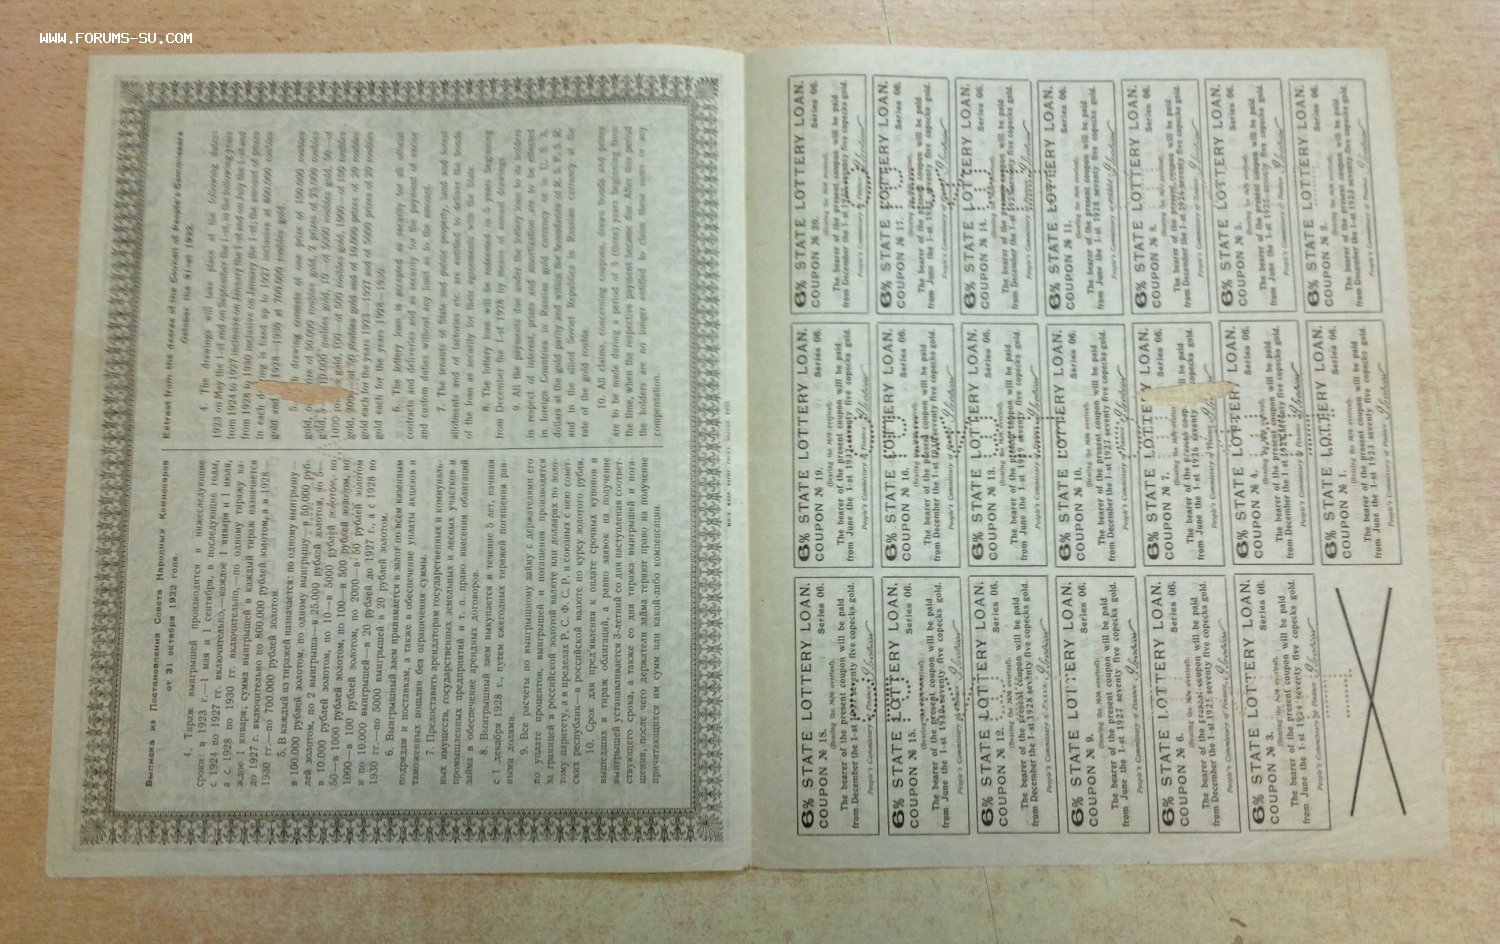 WWW.FORUMS-SU.COM
Выписка из Постановления Совета Народных Комиссаров
от 31 октября 1922 года.
4. Тираж выигрышей производится в нижеследующие
сроки: в 1923 г.—1 мая и 1 сентября, в последующие годы,
с 1924 по 1927 гг. включительно,—каждое 1 января и 1 июля,
а с 1928 по 1930 гг. включительно,—по одному тиражу каждое
1 января; сумма выигрышей в каждый тираж назначается
до 1927 г. включительно по 800.000 рублей золотом, а в 1928—
1930 гг.—по 700.000 рублей золотом.
5. В каждый из тиражей назначается: по одному выигрышу
в 100.000 рублей золотом, по одному выигрышу—в 50.000 рублей
золотом, по 2 выигрыша—в 25.000 рублей золотом, по
в 10.000 рублей золотом, по 10—в 5000 рублей золотом, по
50—в 1000 рублей золотом, по 100—в 500 рублей золотом, по
1000—в 100 рублей золотом, по 2000—в 50 рублей золотом
и по 10.000 выигрышей—в 20 рублей до 1927 г., а с 1928 по
1930 гг.—по 5000 выигрышей в 20 рублей золотом.
6. Выигрышный заем принимается в залог по всем казенным
подрядам и поставкам, а также в обеспечение уплаты акцизов и
таможенных пошлин без ограничения суммы.
7. Предоставить арендаторам государственных и коммунальных
имуществ, государственных земельных и лесных участков и
промышленных предприятий и т. п. право внесения облигаций
займа в обеспечение арендных договоров.
8. Выигрышный заем выкупается в течение 5 лет, начиная
с 1 декабря 1928 г., путем ежегодных тиражей погашения равными
долями.
9. Все расчеты по выигрышному займу с держателями его
по уплате процентов, выигрышей и погашения производятся
за границей в российской золотой валюте или долларах по золотому
паритету, а в пределах Р. С. Ф. С. Р. и союзных с нею советских
республик—в российской валюте по курсу золотого рубля.
10. Срок для предъявления к оплате срочных купонов и
вышедших в тираж облигаций, а равно заявок на получение
выигрышей устанавливается 3-летний со дня наступления соответствующего
срока, а также со дня тиража выигрышей и погашения,
после чего держатели займа теряют право на получение
причитающихся им сумм или какой-либо компенсации.
Extract from the decree of the Council of People's Commissars
October the 31-st 1922.
4. The drawings will take place at the following dates:
1923 on May the 1-st and on September the 1-st, in the following years
from 1924 to 1927 inclusive on January the 1-st and on July the 1-st and
from 1928 to 1930 inclusive on January the 1-st; the amount of prizes
in each drawing is fixed up to 1927 inclusive at 800,000 roubles
gold and 1928—1930 at 700,000 roubles gold.
5. drawing consists of one prize of 100,000 roubles
gold, of 50,000 roubles gold, 2 prizes of 25,000 roubles
gold, 10,000 roubles gold, 10—of 5000 roubles gold, 50—of
1000 gold, 100—of 500 roubles gold, 1000—of 100 roubles
gold, of 50 roubles gold and of 10,000 prizes of 20 roubles
gold each for the years 1923—1927 and of 5000 prizes of 20 roubles
gold each for the years 1928—1930.
6. The lottery loan is accepted as security for all official
contracts and deliveries and as security for the payment of excise
and custom duties without any limit as to the amount.
7. The tenants of State and public property, land and forest
allotments and of factories etc. are entitled to deliver the bonds
of the loan as security for their agreements with the State.
8. The lottery loan will be redeemed in 5 years beginning
from December the 1-st of 1928 by means of annual drawings.
9. All the payments due under the lottery loan to its holders
in respect of interest, prizes and amortization are to be effected
in foreign Countries in Russian gold currency or in U. S. A.
dollars at the gold parity and within the boundaries of R. S. F. S. R.
and in the allied Soviet Republics in Russian currency at the
rate of the gold rouble.
10. All claims, concerning coupons, drawn bonds and prizes
are to be made during a period of 3 (three) years beginning from
the time, when the respective payment became due. After this period
the holders are no longer entitled to claim these sums or any
compensation.
6% STATE LOTTERY LOAN.
COUPON № 18. Series 06.
(Bearing the №№ overleaf).
The bearer of the present coupon will be paid
from December the 1-st seventy five copecks gold.
People's Commissary of Finance
6% STATE LOTTERY LOAN.
COUPON № 19. Series 06.
(Bearing the №№ overleaf).
The bearer of the present coupon will be paid
from June the 1-st 1932 seventy five copecks gold.
People's Commissary of Finance
6% STATE LOTTERY LOAN.
COUPON № 20. Series 06.
(Bearing the №№ overleaf).
The bearer of the present coupon will be paid
from December the 1-st 1932 seventy five copecks gold.
People's Commissary of Finance
6% STATE LOTTERY LOAN.
COUPON № 15. Series 06.
(Bearing the №№ overleaf).
The bearer of the present coupon will be paid
from June the 1-st 1930 seventy five copecks gold.
People's Commissary of Finance
6% STATE LOTTERY LOAN.
COUPON № 16. Series 06.
(Bearing the №№ overleaf).
The bearer of the present coupon will be paid
from December the 1-st seventy five copecks gold.
People's Commissary of Finance
6% STATE LOTTERY LOAN.
COUPON № 17. Series 06.
(Bearing the №№ overleaf).
The bearer of the present coupon will be paid
from June the 1-st seventy five copecks gold.
People's Commissary of Finance
6% STATE LOTTERY LOAN.
COUPON № 12. Series 06.
(Bearing the №№ overleaf).
The bearer of the present coupon will be paid
from December the 1-st 1928 seventy five copecks gold.
People's Commissary of Finance
6% STATE LOTTERY LOAN.
COUPON № 13. Series 06.
(Bearing the №№ overleaf).
The bearer of the present coupon will be paid
from June the 1-st 1929 seventy five copecks gold.
People's Commissary of Finance
6% STATE LOTTERY LOAN.
COUPON № 14. Series 06.
(Bearing the №№ overleaf).
The bearer of the present coupon will be paid
from December the 1-st seventy five copecks gold.
People's Commissary of Finance
6% STATE LOTTERY LOAN.
COUPON № 9. Series 06.
(Bearing the №№ overleaf).
The bearer of the present coupon will be paid
from June the 1-st 1927 seventy five copecks gold.
People's Commissary of Finance
6% STATE LOTTERY LOAN.
COUPON № 10. Series 06.
(Bearing the №№ overleaf).
The bearer of the present coupon will be paid
from December the 1-st 1927 seventy five copecks gold.
People's Commissary of Finance
6% STATE LOTTERY LOAN.
COUPON № 11. Series 06.
(Bearing the №№ overleaf).
The bearer of the present coupon will be paid
from June the 1-st 1928 seventy five copecks gold.
People's Commissary of Finance
6% STATE LOTTERY LOAN.
COUPON № 6. Series 06.
(Bearing the №№ overleaf).
The bearer of the present coupon will be paid
from December the 1-st 1925 seventy five copecks gold.
People's Commissary of Finance
6% STATE LOTTERY LOAN.
COUPON № 7. Series 06.
The bearer of the present coupon will be paid
from June the 1-st 1926 seventy five copecks gold.
People's Commissary of Finance
6% STATE LOTTERY LOAN.
COUPON № 8. Series 06.
(Bearing the №№ overleaf).
The bearer of the present coupon will be paid
from December the 1-st 1926 seventy five copecks gold.
People's Commissary of Finance
6% STATE LOTTERY LOAN.
COUPON № 3. Series 06.
(Bearing the №№ overleaf).
The bearer of the present coupon will be paid
from June the 1-st 1924 seventy five copecks gold.
People's Commissary of Finance
6% STATE LOTTERY LOAN.
COUPON № 4. Series 06.
(Bearing the №№ overleaf).
The bearer of the present coupon will be paid
from December the 1-st 1924 seventy five copecks gold.
People's Commissary of Finance
6% STATE LOTTERY LOAN.
COUPON № 5. Series 06.
(Bearing the №№ overleaf).
The bearer of the present coupon will be paid
from June the 1-st 1925 seventy five copecks gold.
People's Commissary of Finance
6% STATE LOTTERY LOAN.
COUPON № 1. Series 06.
(Bearing the №№ overleaf).
The bearer of the present coupon will be paid
from June the 1-st 1923 seventy five copecks gold.
People's Commissary of Finance
6% STATE LOTTERY LOAN.
COUPON № 2. Series 06.
(Bearing the №№ overleaf).
The bearer of the present coupon will be paid
from December the 1-st 1923 seventy five copecks gold.
People's Commissary of Finance